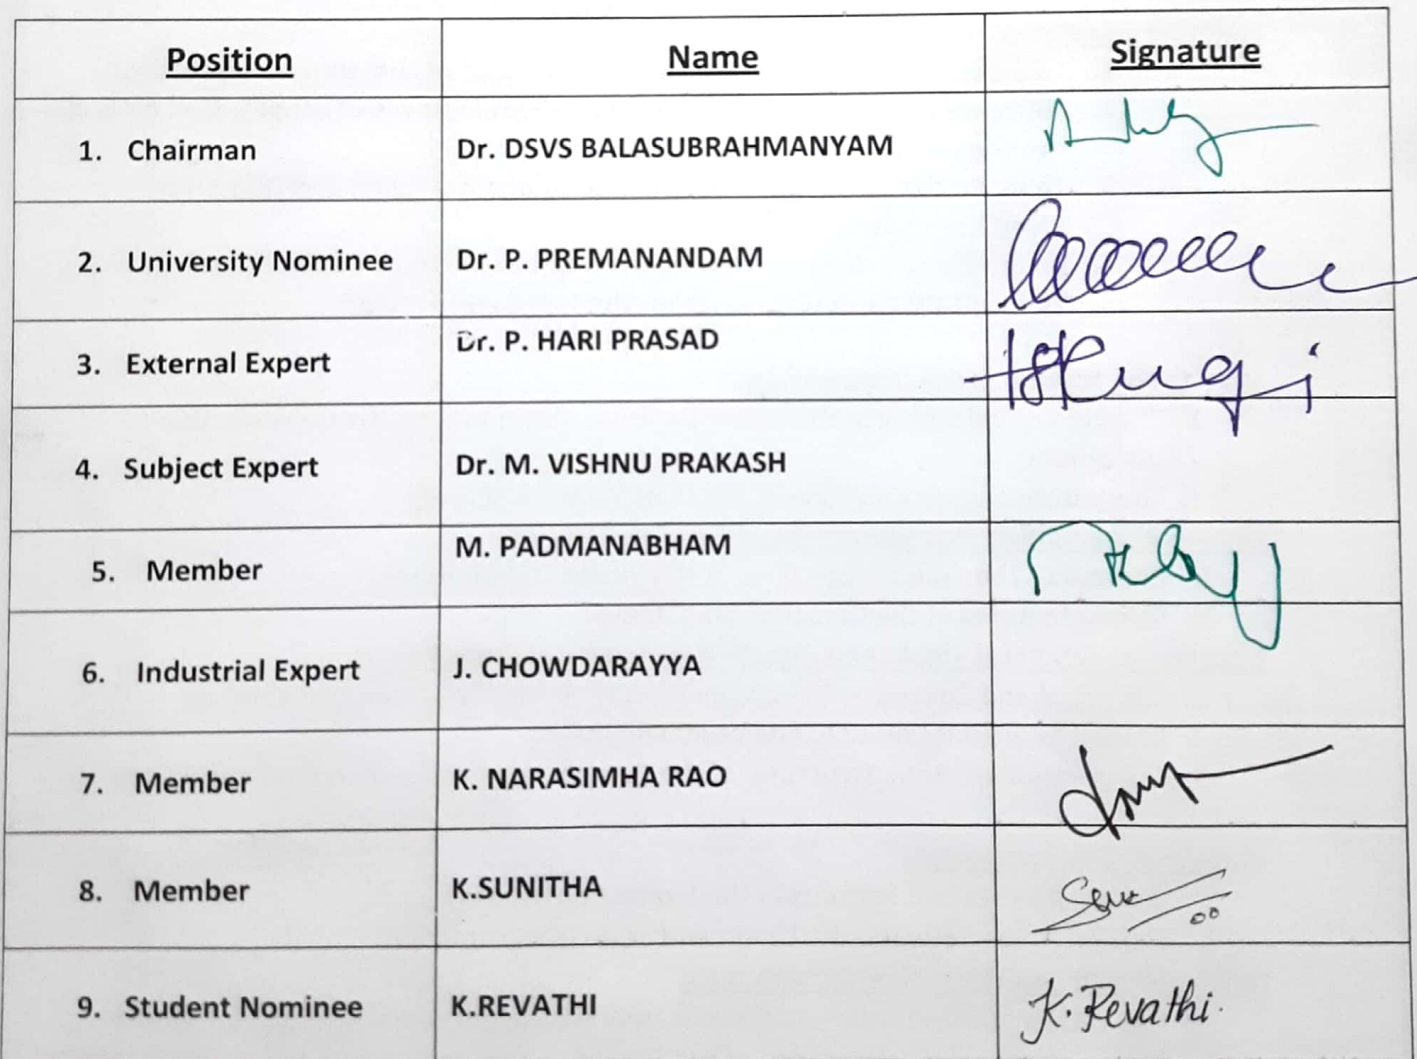 Position Name Signature
1. Chairman Dr. DSVS BALASUBRAHMANYAM
2. University Nominee Dr. P. PREMANANDAM
3. External Expert Dr. P. HARI PRASAD
4. Subject Expert Dr. M. VISHNU PRAKASH
5. Member M. PADMANABHAM
6. Industrial Expert J. CHOWDARAYYA
7. Member K. NARASIMHA RAO
8. Member K.SUNITHA
9. Student Nominee K.REVATHI K. Revathi.